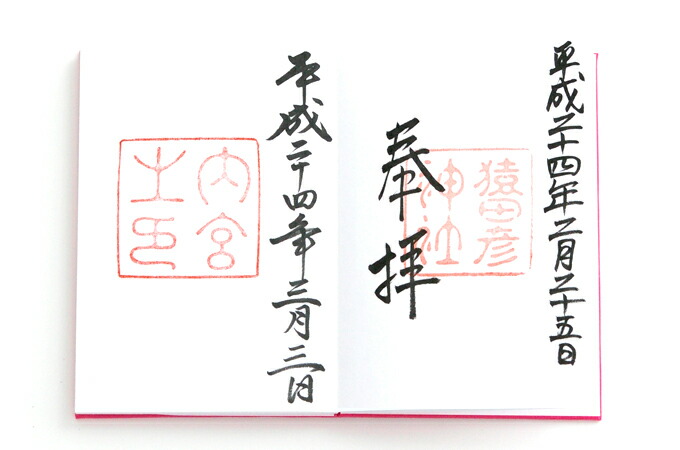 平成二十四年二月二十五日
猿田彦
神社
奉拝
平成二十四年三月三日
内宮
之印